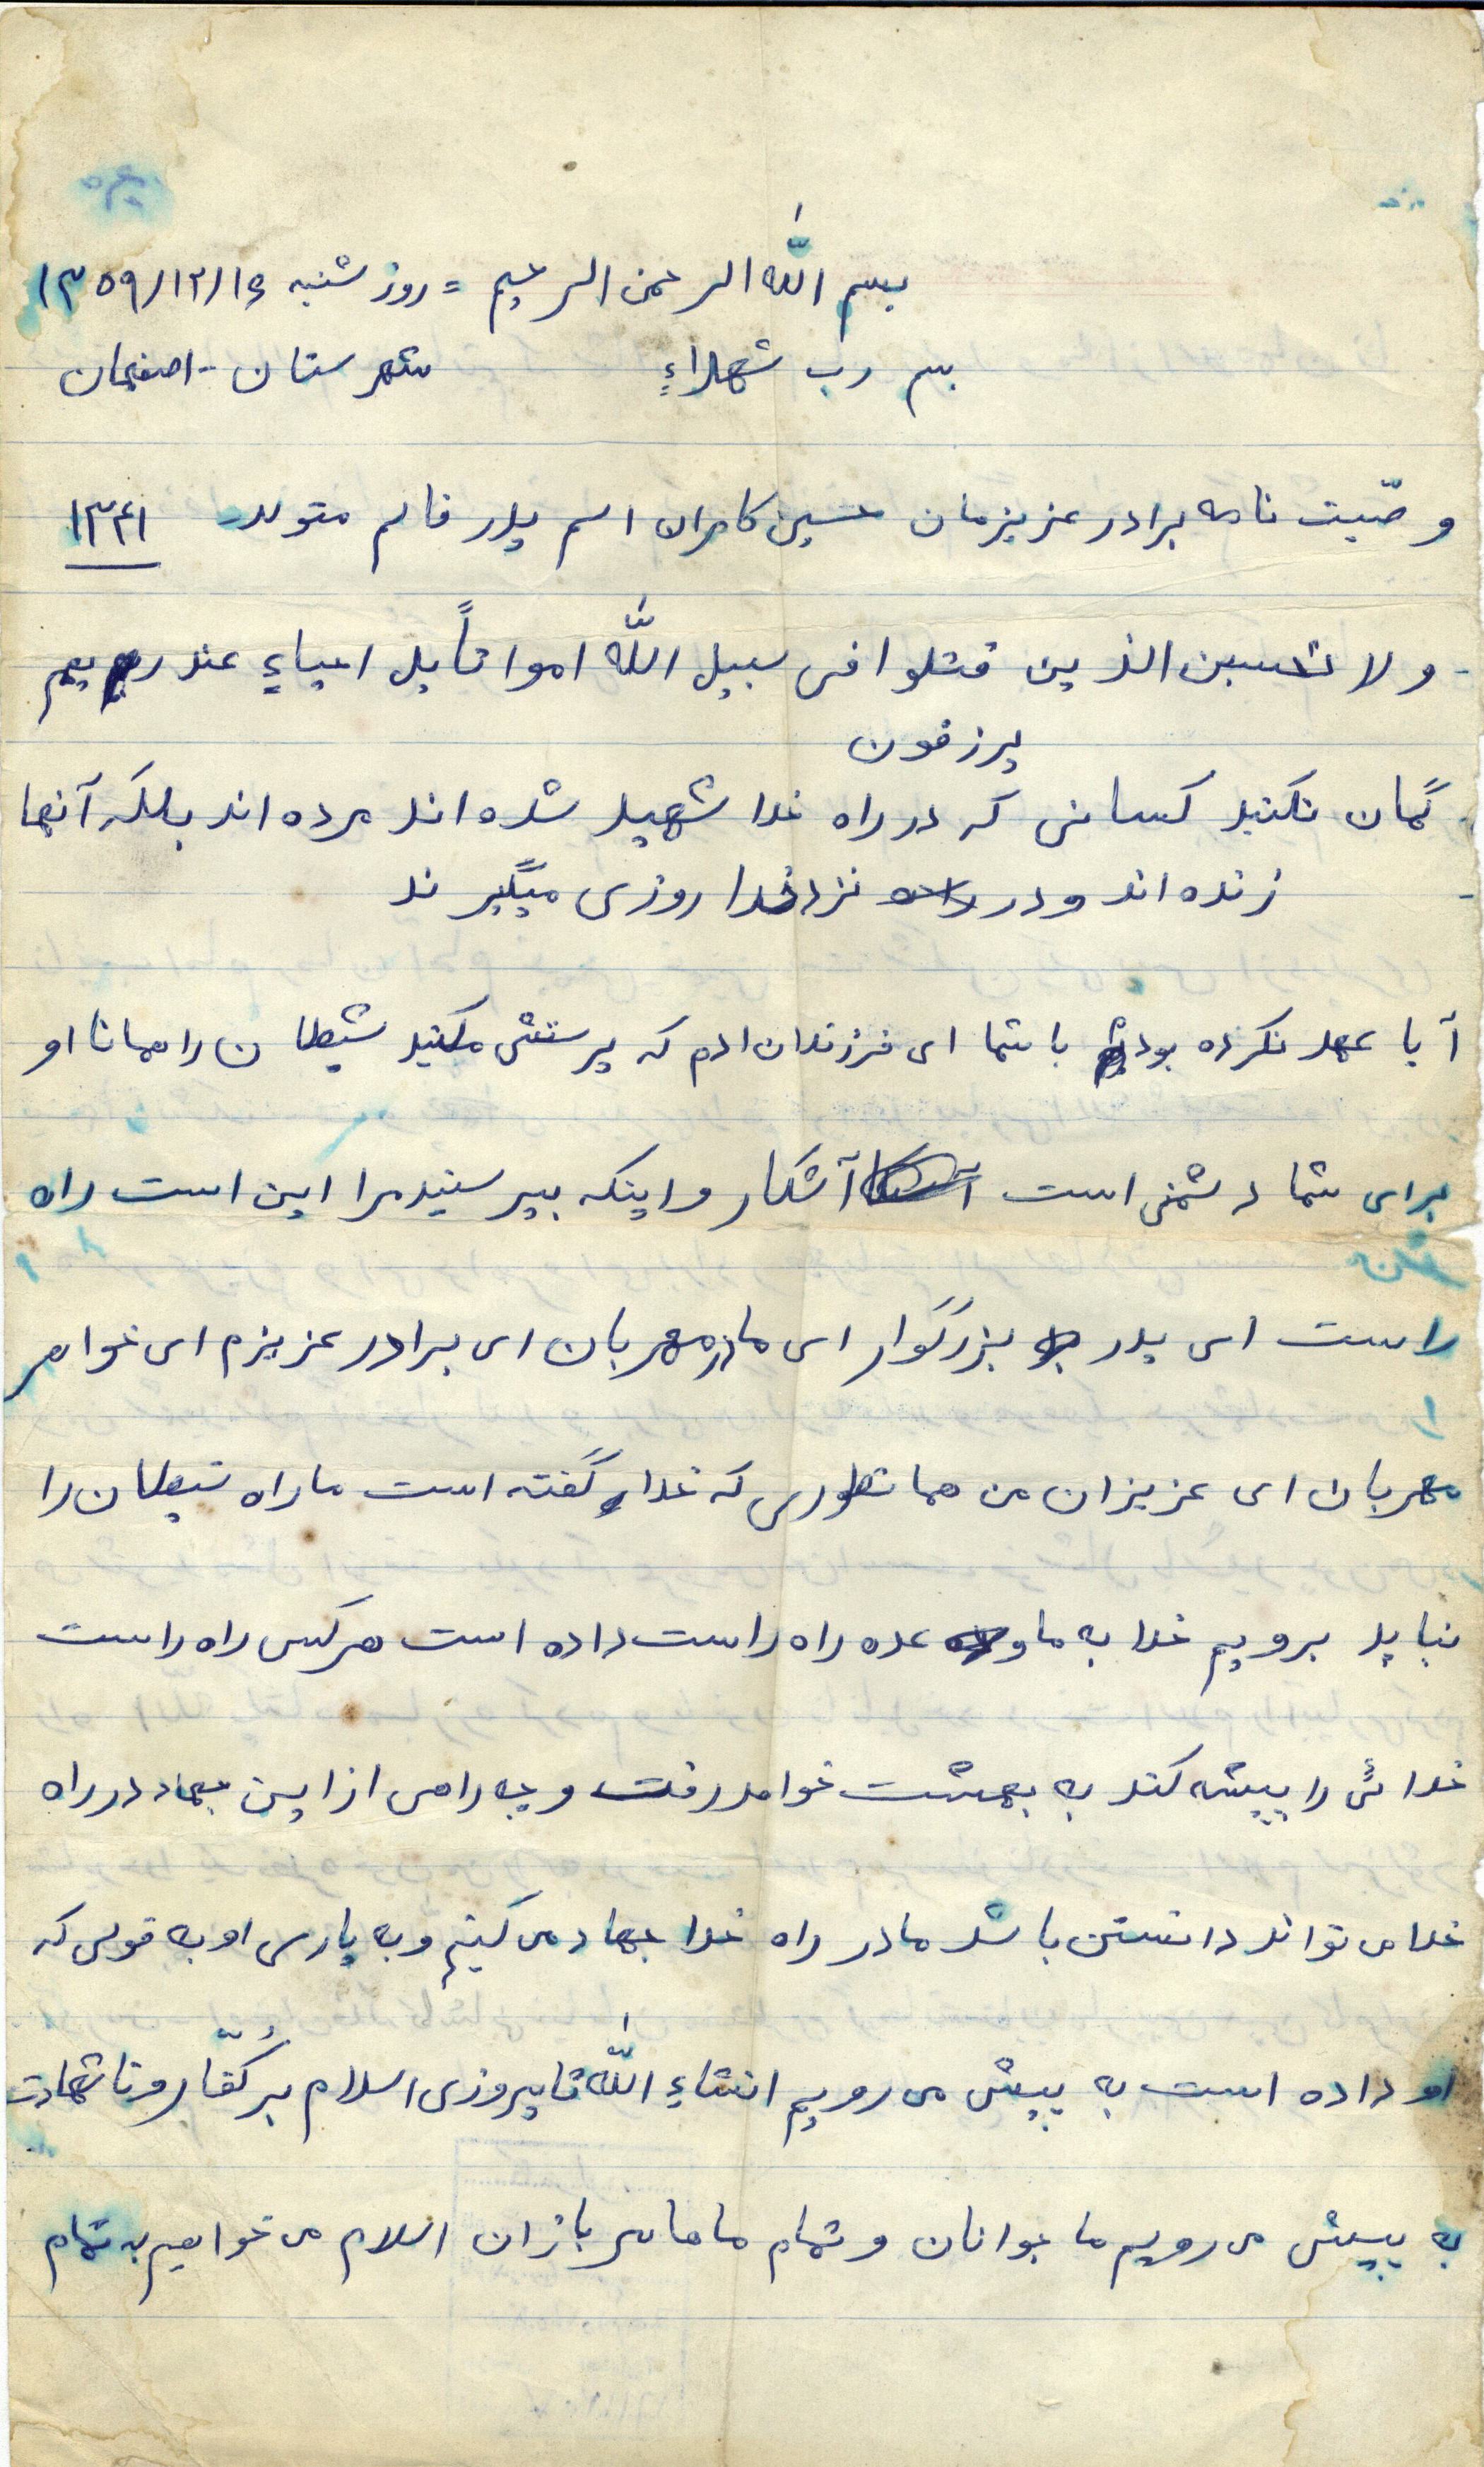 بسم الله الرحمن الرحیم = روز شنبه ۱۳۵۹/۱۲/۱۶
بسم رب شهداءِ شهرستان - اصفهان
وصّیت نامه برادر عزیزمان حسین کامران اسم پدر قاسم متولد ۱۳۴۱
ولا تحسبن الذین قتلوا فی سبیل الله امواتاً بل احیاءٍ عند ربهم
یرزقون
گمان نکنید کسانی که در راه خدا شهید شده اند مرده اند بلکه آنها
زنده اند و در نزد خدا روزی میگیرند
آیا عهد نکرده بودیم با شما ای فرزندان ادم که پرستش مکنید شیطان را همانا او
برای شما دشمنی است آشکار و اینکه بپرستید مرا این است راه
راست ای پدر بزرگوار ای مادر مهربان ای برادر عزیزم ای خواهر
مهربان ای عزیزان من همانطوری که خدا گفته است ما راه شیطان را
نباید برویم خدا به ما وعده راه راست داده است هر کس راه راست
خدائی را پیشه کند به بهشت خواهد رفت و چه راهی از این جهاد در راه
خدا می تواند دانستن باشد ما در راه خدا جهاد می کنیم و به یاری او به قولی که
او داده است به پیش می رویم انشاءِ الله تا پیروزی اسلام بر کُفّار و تا شهادت
به پیش می رویم ما جوانان و تمام ماها سربازان اسلام می خواهیم به تمام